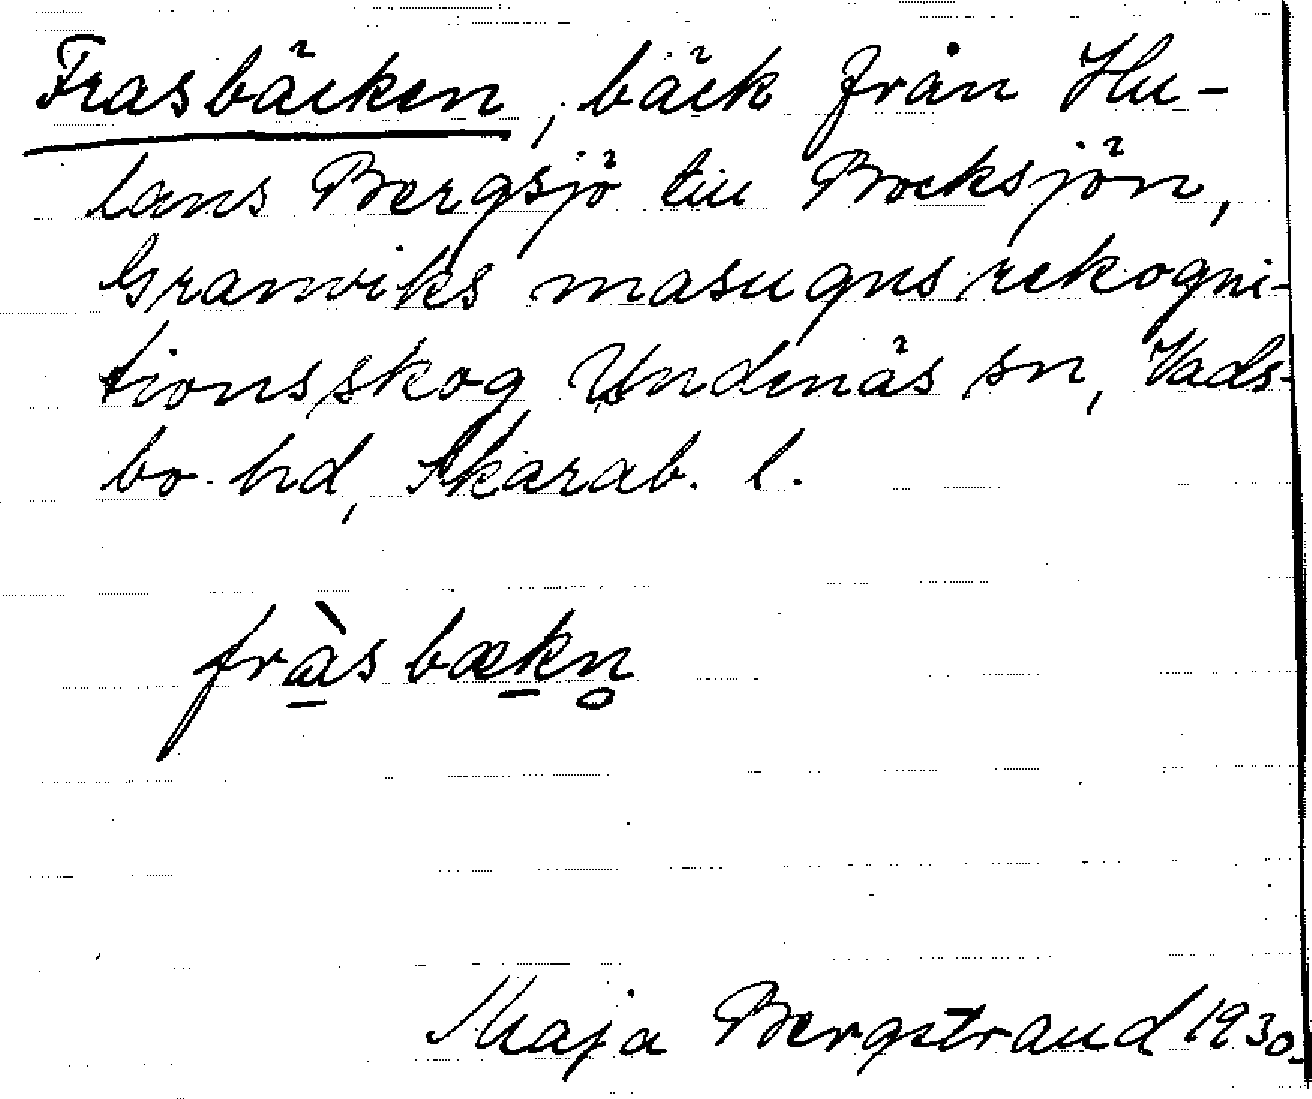 Frasbäcken, bäck från Hu-
lans Bergsjö till Bocksjön,
Granviks masugns rekogni-
tionsskog Undenäs sn, Vads-
bo hd, Skarab. l.
fràsbækn̥
Maja Bergstrand 1930.